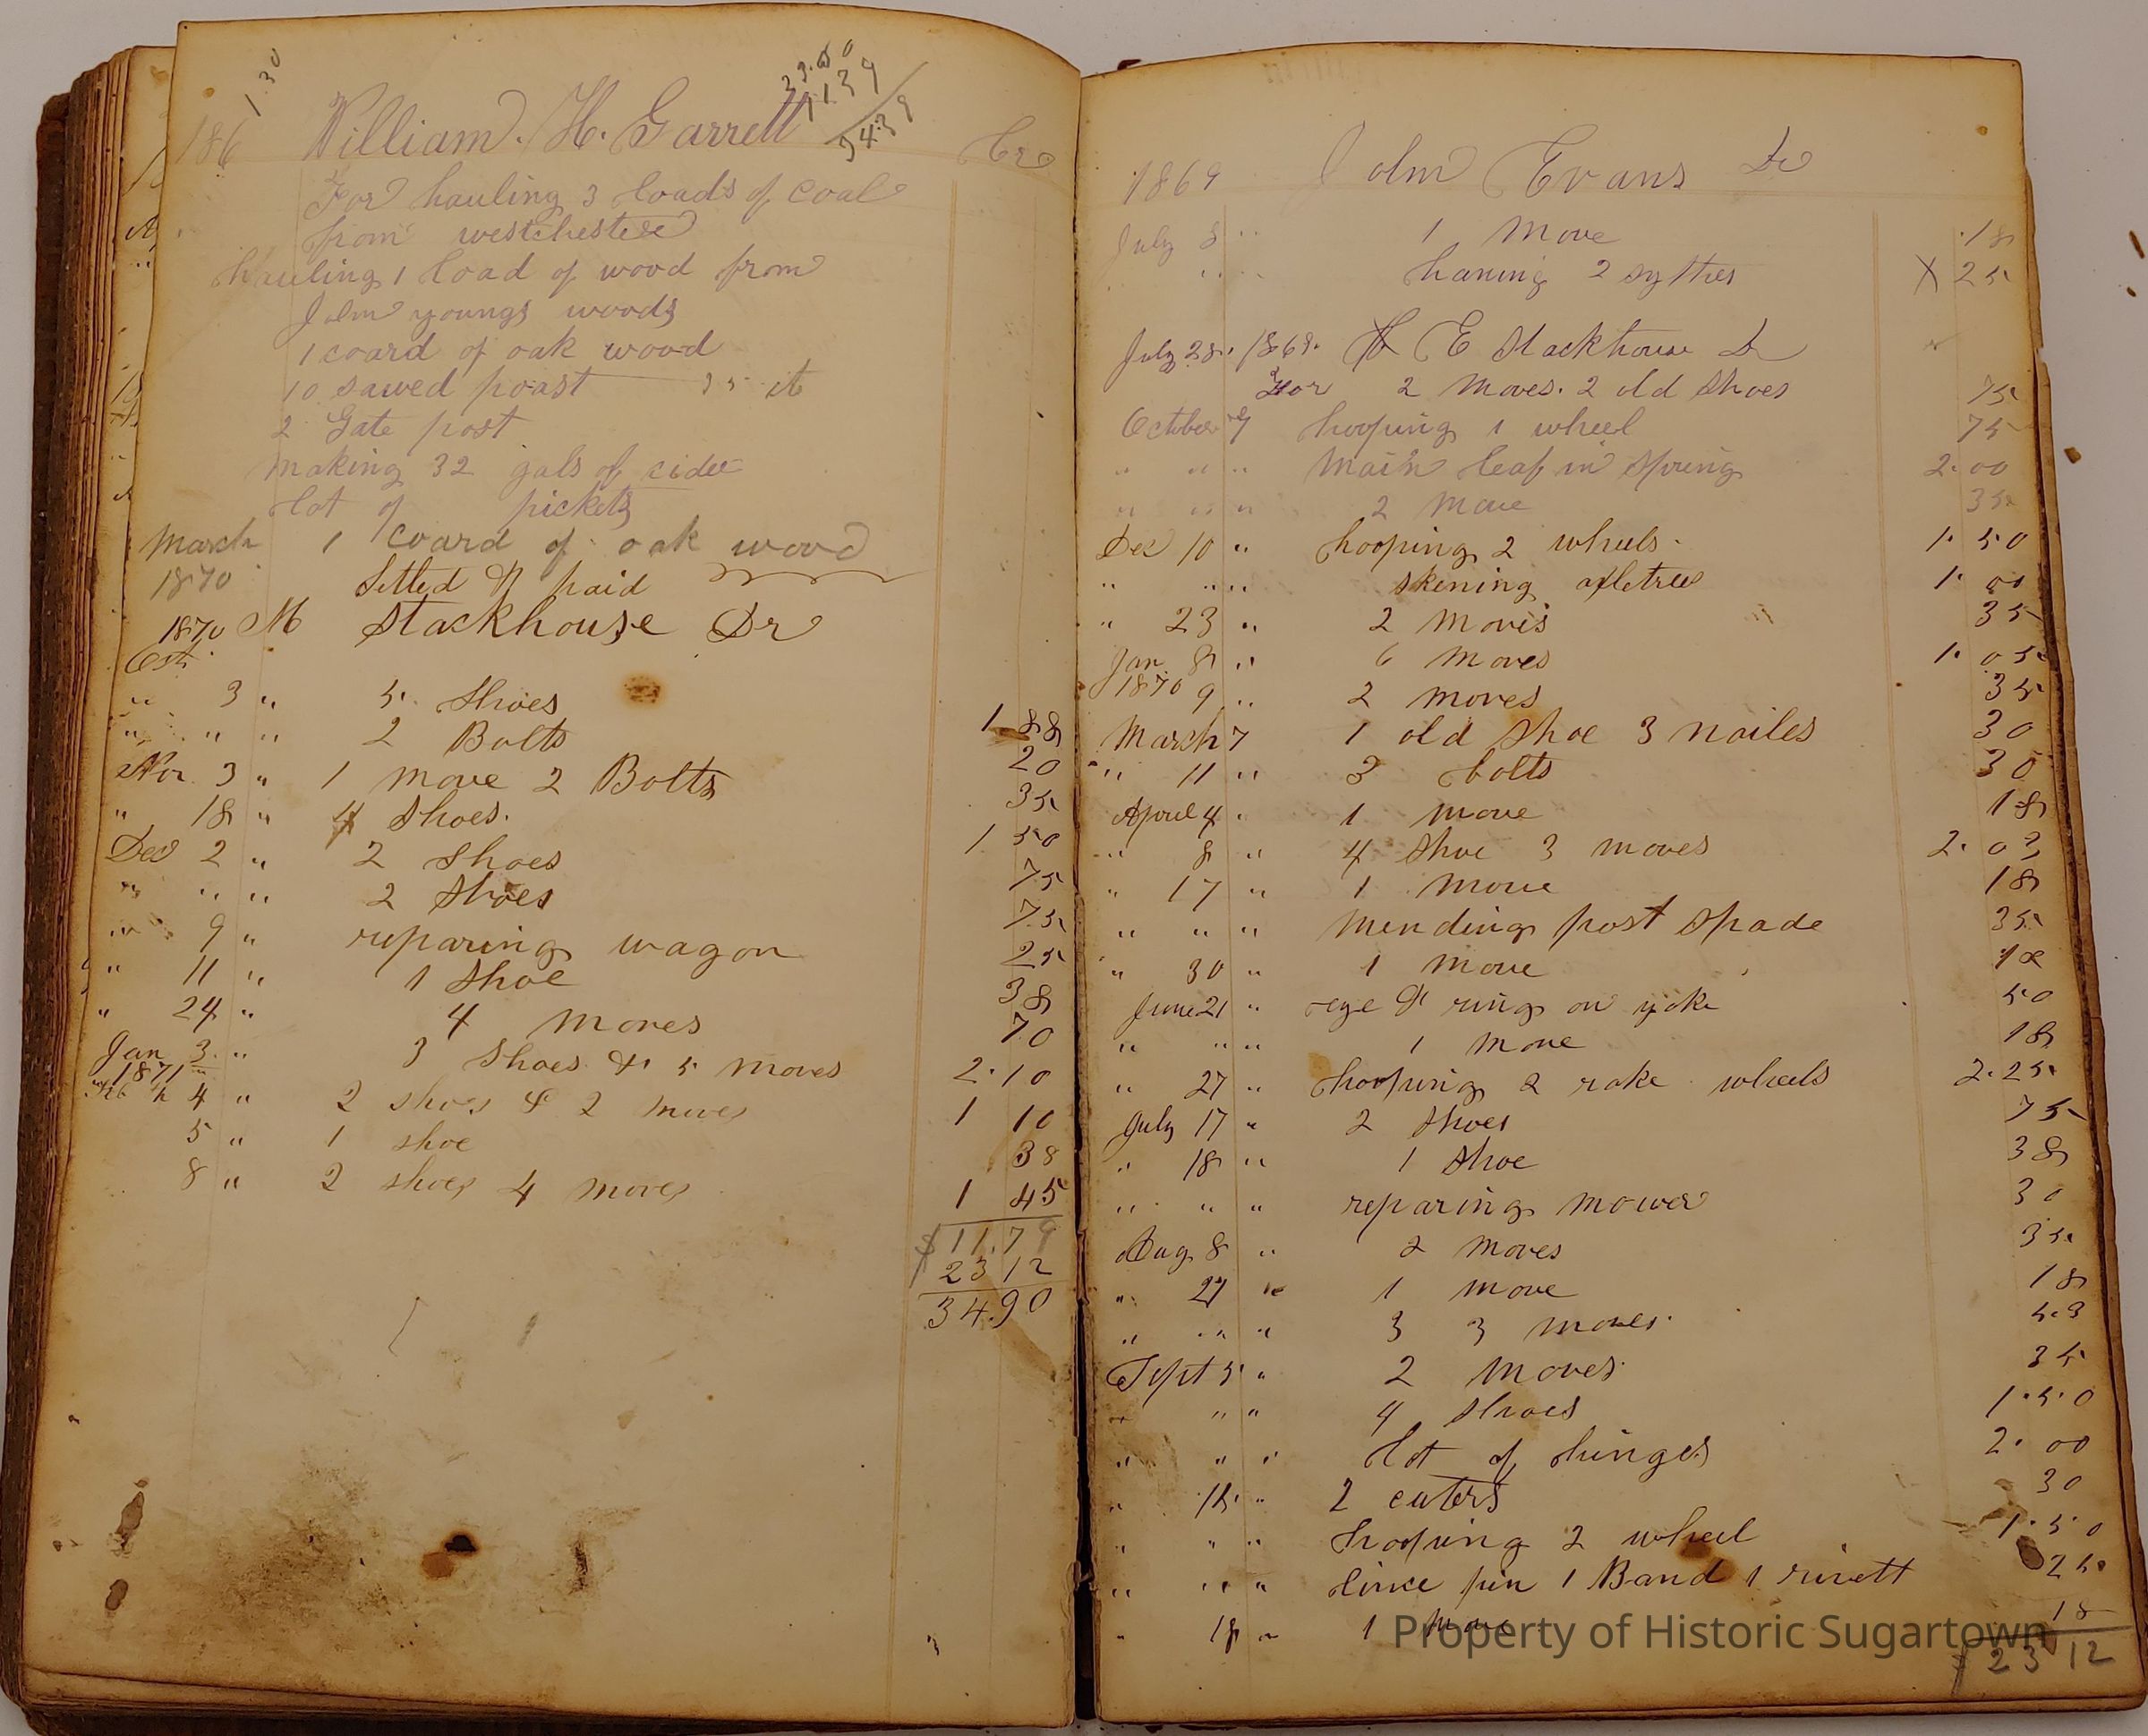 1.30
33.50
1139
3439
186 William. H. Garrett Cr
For hauling 3 loads of coal
from westchester
hauling 1 load of wood from
John youngs woods
1 coard of oak wood
10 sawed poast 35 ct
2 Gate post
making 32 gals of cider
lot of pickets
March 1 coard of oak wood
1870 Setled & paid
1870 M Stackhouse Dr
Oct.
" 3 " 5 Shoes 1 88
" " " 2 Bolts 20
Nov 3 " 1 move 2 Bolts 35
" 18 " 4 shoes. 1 50
Dec 2 " 2 shoes 75
" " " 2 shoes 75
" 9 " reparing wagon 25
" 11 " 1 shoe 38
" 24 " 4 moves 70
Jan 3 " 3 Shoes & 5 moves 2.10
1871
Feb 4 " 2 shoes & 2 moves 1 10
5 " 1 shoe 38
8 " 2 shoes 4 moves 1 45
$11.79
23 12
34.90
1869 John Evans Dr
July 8 " 1 move .18
" " haning 2 sythes X 25
July 28. 1869. H E Stackhouse Dr
For 2 moves. 2 old shoes 75
October 9 hooping 1 wheel 75
" " " main leaf in spring 2.00
" " " 2 move 35
Dec 10 " hooping 2 wheels. 1.50
" " " skening axletree 1.00
" 23 " 2 moves 35
Jan. 8 " 6 moves 1.05
1870 9 " 2 moves 35
March 7 1 old shoe 3 nailes 30
" 11 " 3 bolts 30
Aprile 4 " 1 move 18
" 8 " 4 shoe 3 moves 2.03
" 17 " 1 move 18
" " " mending post spade 35
" 30 " 1 move 18
June 21 " eye & ring on yoke 50
" " " 1 move 18
" 27 " hooping 2 rake wheels 2.25
July 17 " 2 shoes 75
" 18 " 1 shoe 38
" " " reparing mower 30
Aug 8 " 2 moves 35
" 27 " 1 move 18
" " " 3 3 moves. 53
Sept 5 " 2 moves. 35
" " " 4 shoes 1.50
" " " lot of hinges 2.00
" 15. " 2 cuters 30
" " " hooping 2 wheel 1.50
" " " lince pin 1 Band 1 rivett 25
" 18 " 1 move 18
$ 23 12
Property of Historic Sugartown